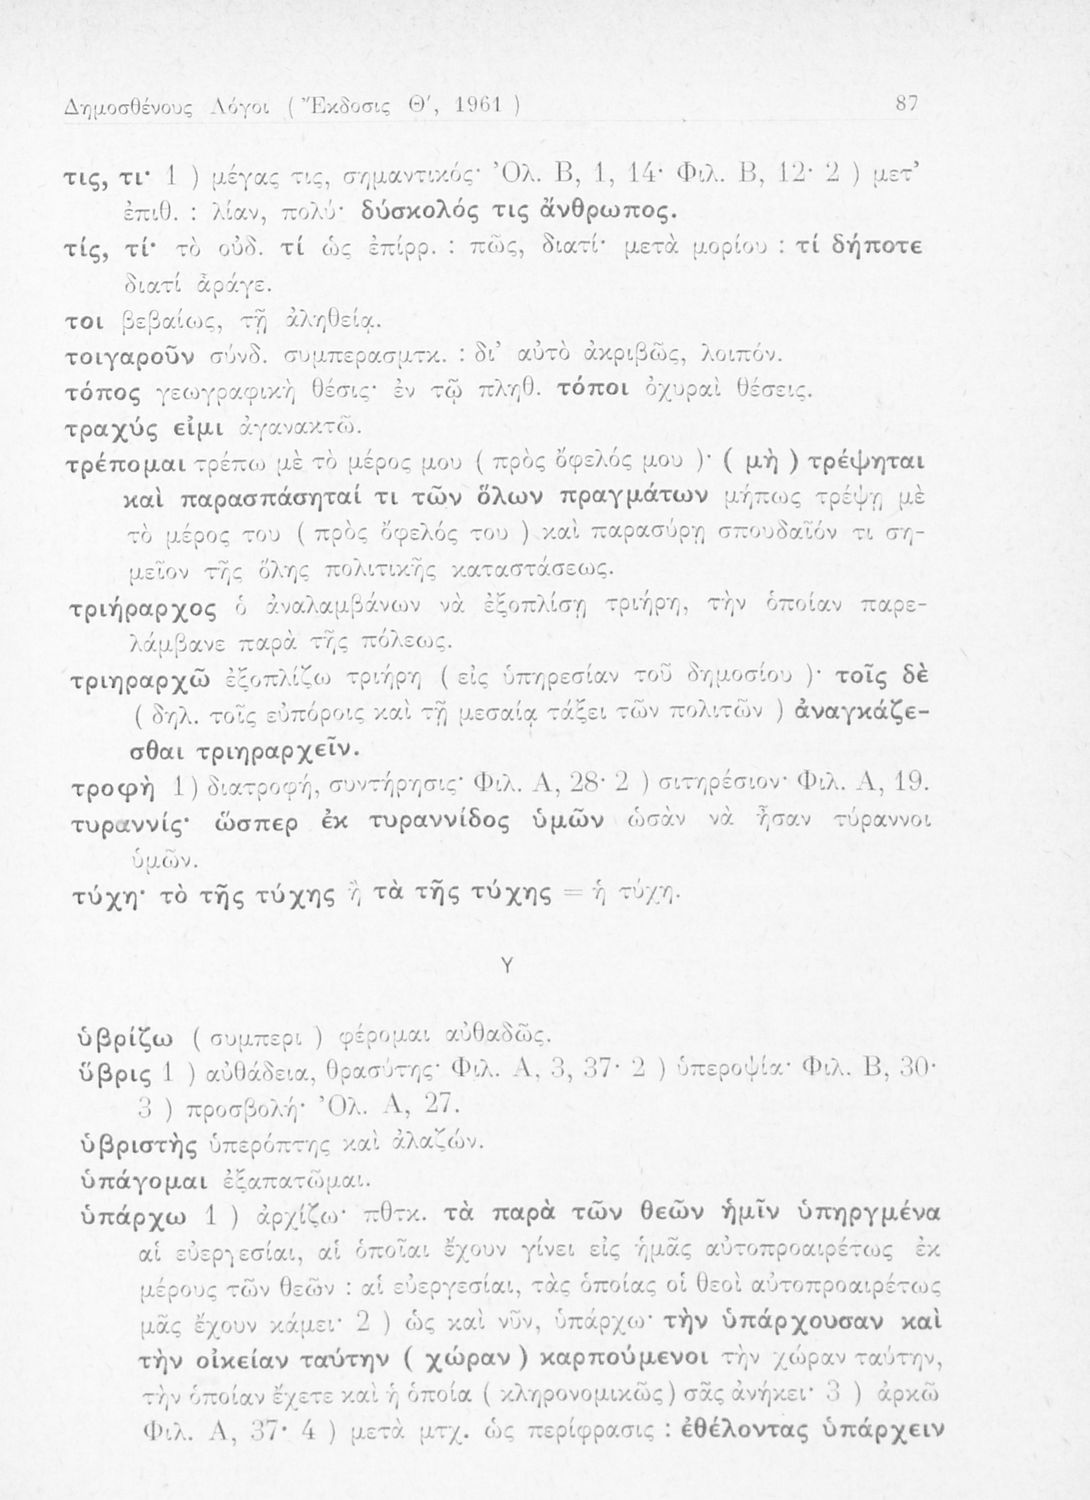 Δημοσθένους Λόγοι ( Ἔκδοσις Θ′, 1961 ) 87
τις, τι· 1 ) μέγας τις, σημαντικός· Ὀλ. Β, 1, 14· Φιλ. Β, 12· 2 ) μετ’
ἐπιθ. : λίαν, πολύ· δύσκολός τις ἄνθρωπος.
τίς, τί· τὸ οὐδ. τί ὡς ἐπίρρ. : πῶς, διατί· μετὰ μορίου : τί δήποτε
διατί ἆράγε.
τοι βεβαίως, τῇ ἀληθείᾳ.
τοιγαροῦν σύνδ. συμπερασμτκ. : δι’ αὐτὸ ἀκριβῶς, λοιπόν.
τόπος γεωγραφικὴ θέσις· ἐν τῷ πληθ. τόποι ὀχυραὶ θέσεις.
τραχύς εἰμι ἀγανακτῶ.
τρέπομαι τρέπω μὲ τὸ μέρος μου ( πρὸς ὄφελός μου )· ( μὴ ) τρέψηται
καὶ παρασπάσηταί τι τῶν ὅλων πραγμάτων μήπως τρέψῃ μὲ
τὸ μέρος του ( πρὸς ὄφελός του ) καὶ παρασύρῃ σπουδαῖόν τι ση-
μεῖον τῆς ὅλης πολιτικῆς καταστάσεως.
τριήραρχος ὁ ἀναλαμβάνων νὰ ἐξοπλίσῃ τριήρη, τὴν ὁποίαν παρε-
λάμβανε παρὰ τῆς πόλεως.
τριηραρχῶ ἐξοπλίζω τριήρη ( εἰς ὑπηρεσίαν τοῦ δημοσίου )· τοῖς δὲ
( δηλ. τοῖς εὐπόροις καὶ τῇ μεσαίᾳ τάξει τῶν πολιτῶν ) ἀναγκάζε-
σθαι τριηραρχεῖν.
τροφὴ 1 ) διατροφή, συντήρησις· Φιλ. Α, 28· 2 ) σιτηρέσιον· Φιλ. Α, 19.
τυραννίς· ὥσπερ ἐκ τυραννίδος ὑμῶν ὡσὰν νὰ ἦσαν τύραννοι
ὑμῶν.
τύχη· τὸ τῆς τύχης ἢ τὰ τῆς τύχης = ἡ τύχη.
Υ
ὑβρίζω ( συμπερι ) φέρομαι αὐθαδῶς.
ὕβρις 1 ) αὐθάδεια, θρασύτης· Φιλ. Α, 3, 37· 2 ) ὑπεροψία· Φιλ. Β, 30·
3 ) προσβολή· Ὀλ. Α, 27.
ὑβριστὴς ὑπερόπτης καὶ ἀλαζών.
ὑπάγομαι ἐξαπατῶμαι.
ὑπάρχω 1 ) ἀρχίζω· πθτκ. τὰ παρὰ τῶν θεῶν ἡμῖν ὑπηργμένα
αἱ εὐεργεσίαι, αἱ ὁποῖαι ἔχουν γίνει εἰς ἡμᾶς αὐτοπροαιρέτως ἐκ
μέρους τῶν θεῶν : αἱ εὐεργεσίαι, τὰς ὁποίας οἱ θεοὶ αὐτοπροαιρέτως
μᾶς ἔχουν κάμει· 2 ) ὡς καὶ νῦν, ὑπάρχω· τὴν ὑπάρχουσαν καὶ
τὴν οἰκείαν ταύτην ( χώραν ) καρπούμενοι τὴν χώραν ταύτην,
τὴν ὁποίαν ἔχετε καὶ ἡ ὁποία ( κληρονομικῶς ) σᾶς ἀνήκει· 3 ) ἀρκῶ
Φιλ. Α, 37· 4 ) μετὰ μτχ. ὡς περίφρασις : ἐθέλοντας ὑπάρχειν